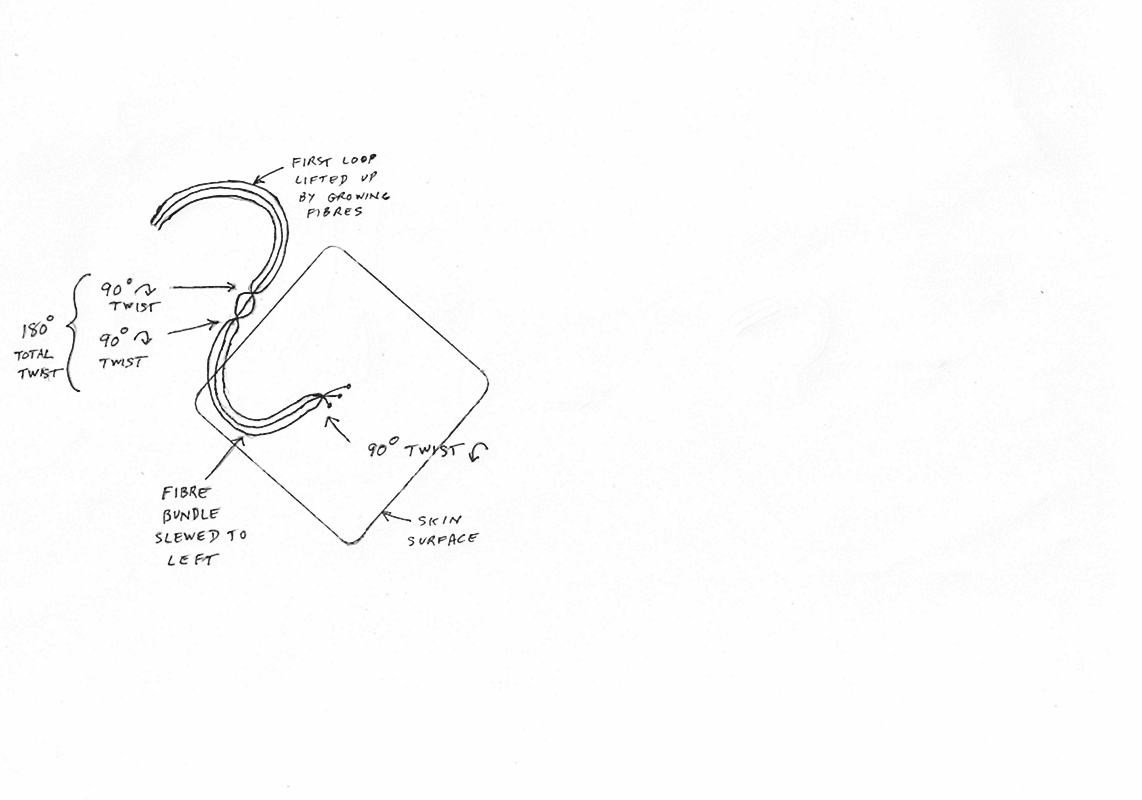 FIRST LOOP
LIFTED UP
BY GROWING
FIBRES
90°
TWIST
90°
TWIST
180°
TOTAL
TWIST
90° TWIST
FIBRE
BUNDLE
SLEWED TO
LEFT
SKIN
SURFACE